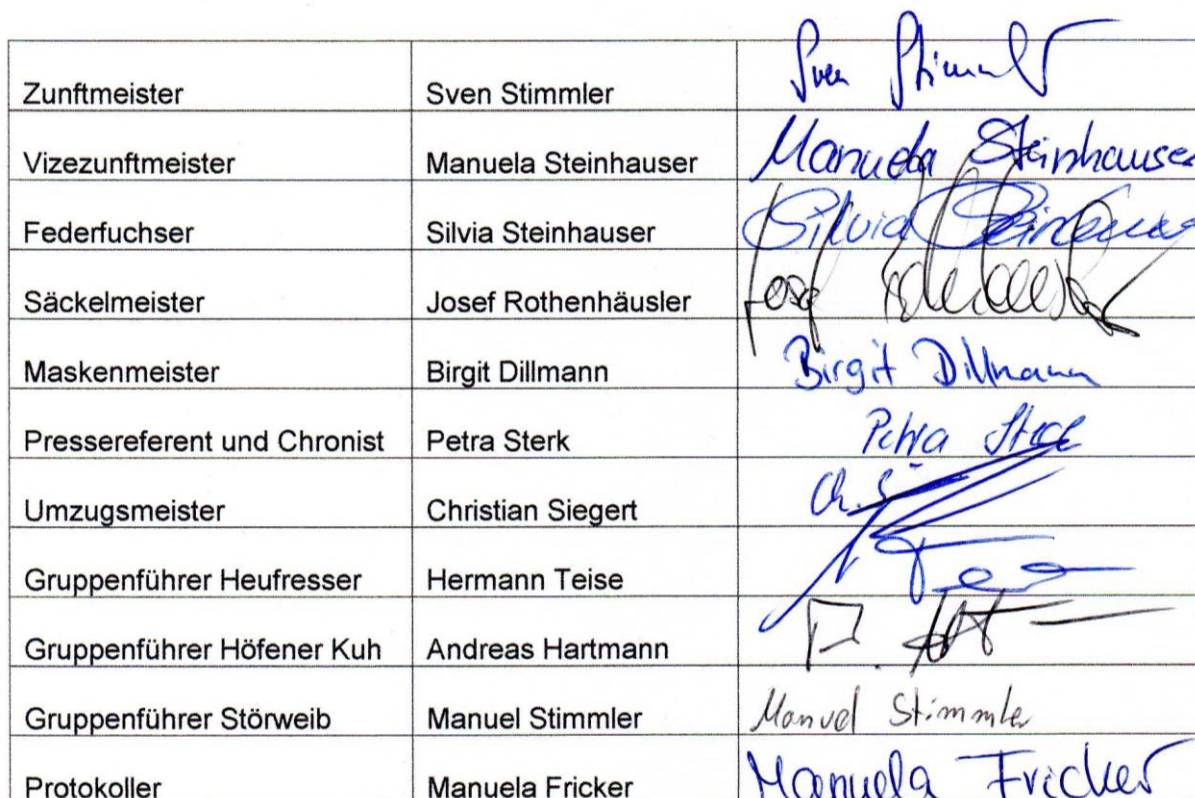 Zunftmeister Sven Stimmler Sven Stimmler
Vizezunftmeister Manuela Steinhauser Manuela Steinhauser
Federfuchser Silvia Steinhauser Silvia Steinhauser
Säckelmeister Josef Rothenhäusler Josef
Maskenmeister Birgit Dillmann Birgit Dillmann
Pressereferent und Chronist Petra Sterk Petra Sterk
Umzugsmeister Christian Siegert Ch. S
Gruppenführer Heufresser Hermann Teise
Gruppenführer Höfener Kuh Andreas Hartmann
Gruppenführer Störweib Manuel Stimmler Manuel Stimmler
Protokoller Manuela Fricker Manuela Fricker